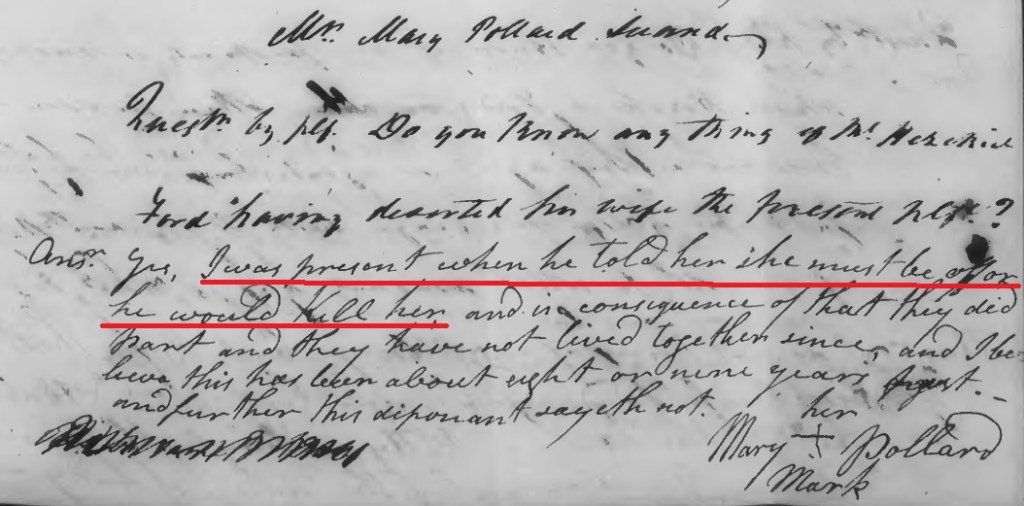 Mrs. Mary Pollard Sworn
Questn by plf. Do you know any thing of Mr Hezekiel
Ford having deserted his wife the present plf. ?
Ansr Yes, I was present when he told her she must be off or
he would kill her and in consequence of that they did
part and they have not lived together since, and I be-
lieve this has been about eight or nine years past.
and further this deponant sayeth not. her
Mary + Pollard
Mark